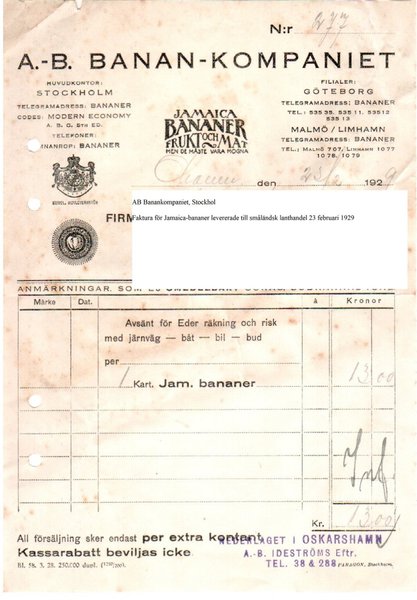 N:r 277
A.-B. BANAN-KOMPANIET
HUVUDKONTOR:
STOCKHOLM
TELEGRAMADRESS: BANANER
CODES: MODERN ECONOMY
A. B. C. 5TH ED.
TELEFONER:
NAMNANROP: BANANER
JAMAICA
BANANER
FRUKT OCH MAT
MEN DE MÅSTE VARA MOGNA
FILIALER:
GÖTEBORG
TELEGRAMADRESS: BANANER
TEL.: 53535, 53511, 53512
53513
MALMÖ / LIMHAMN
TELEGRAMADRESS: BANANER
TEL.: MALMÖ 707, LIMHAMN 1077
1078, 1079
den 23/2 1929
KUNGL. HOFLEVERANTÖR
AB Banankompaniet, Stockhol
Faktura för Jamaica-bananer levererade till småländsk lanthandel 23 februari 1929
FIRM
ANMÄRKNINGAR, SOM EJ OMEDELBART
Märke Dat. à Kronor
Avsänt för Eder räkning och risk
med järnväg — båt — bil — bud
per
1 Kart. Jam. bananer 13.00
Kr. 13.00
All försäljning sker endast per extra kontant.
Kassarabatt beviljas icke.
NEDERLAGET I OSKARSHAMN
A.-B. IDESTRÖMS Eftr.
TEL. 38 & 288
Bl. 58. 3. 28. 250.000 dupl.
PARAGON, Stockholm.